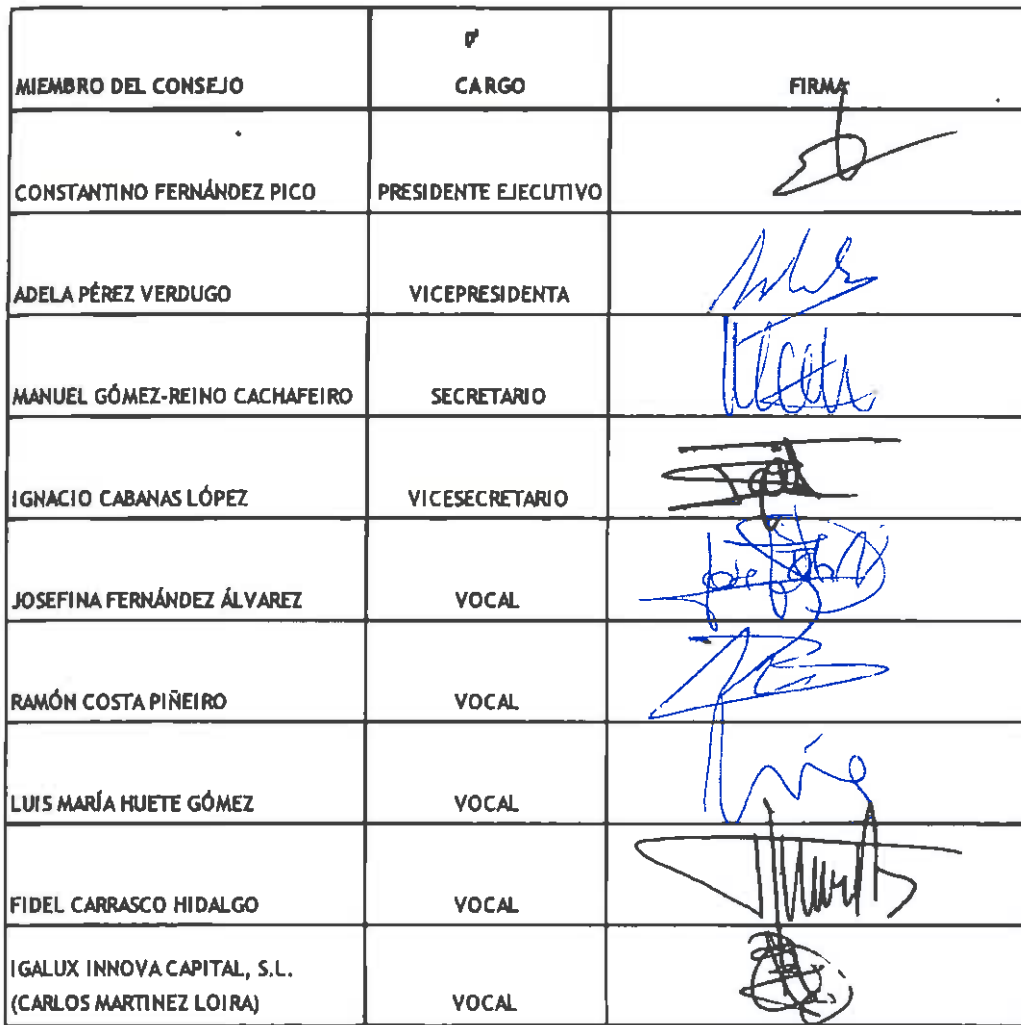 MIEMBRO DEL CONSEJO CARGO FIRMA
CONSTANTINO FERNÁNDEZ PICO PRESIDENTE EJECUTIVO
ADELA PÉREZ VERDUGO VICEPRESIDENTA
MANUEL GÓMEZ-REINO CACHAFEIRO SECRETARIO
IGNACIO CABANAS LÓPEZ VICESECRETARIO
JOSEFINA FERNÁNDEZ ÁLVAREZ VOCAL
RAMÓN COSTA PIÑEIRO VOCAL
LUIS MARÍA HUETE GÓMEZ VOCAL
FIDEL CARRASCO HIDALGO VOCAL
IGALUX INNOVA CAPITAL, S.L.
(CARLOS MARTINEZ LOIRA) VOCAL